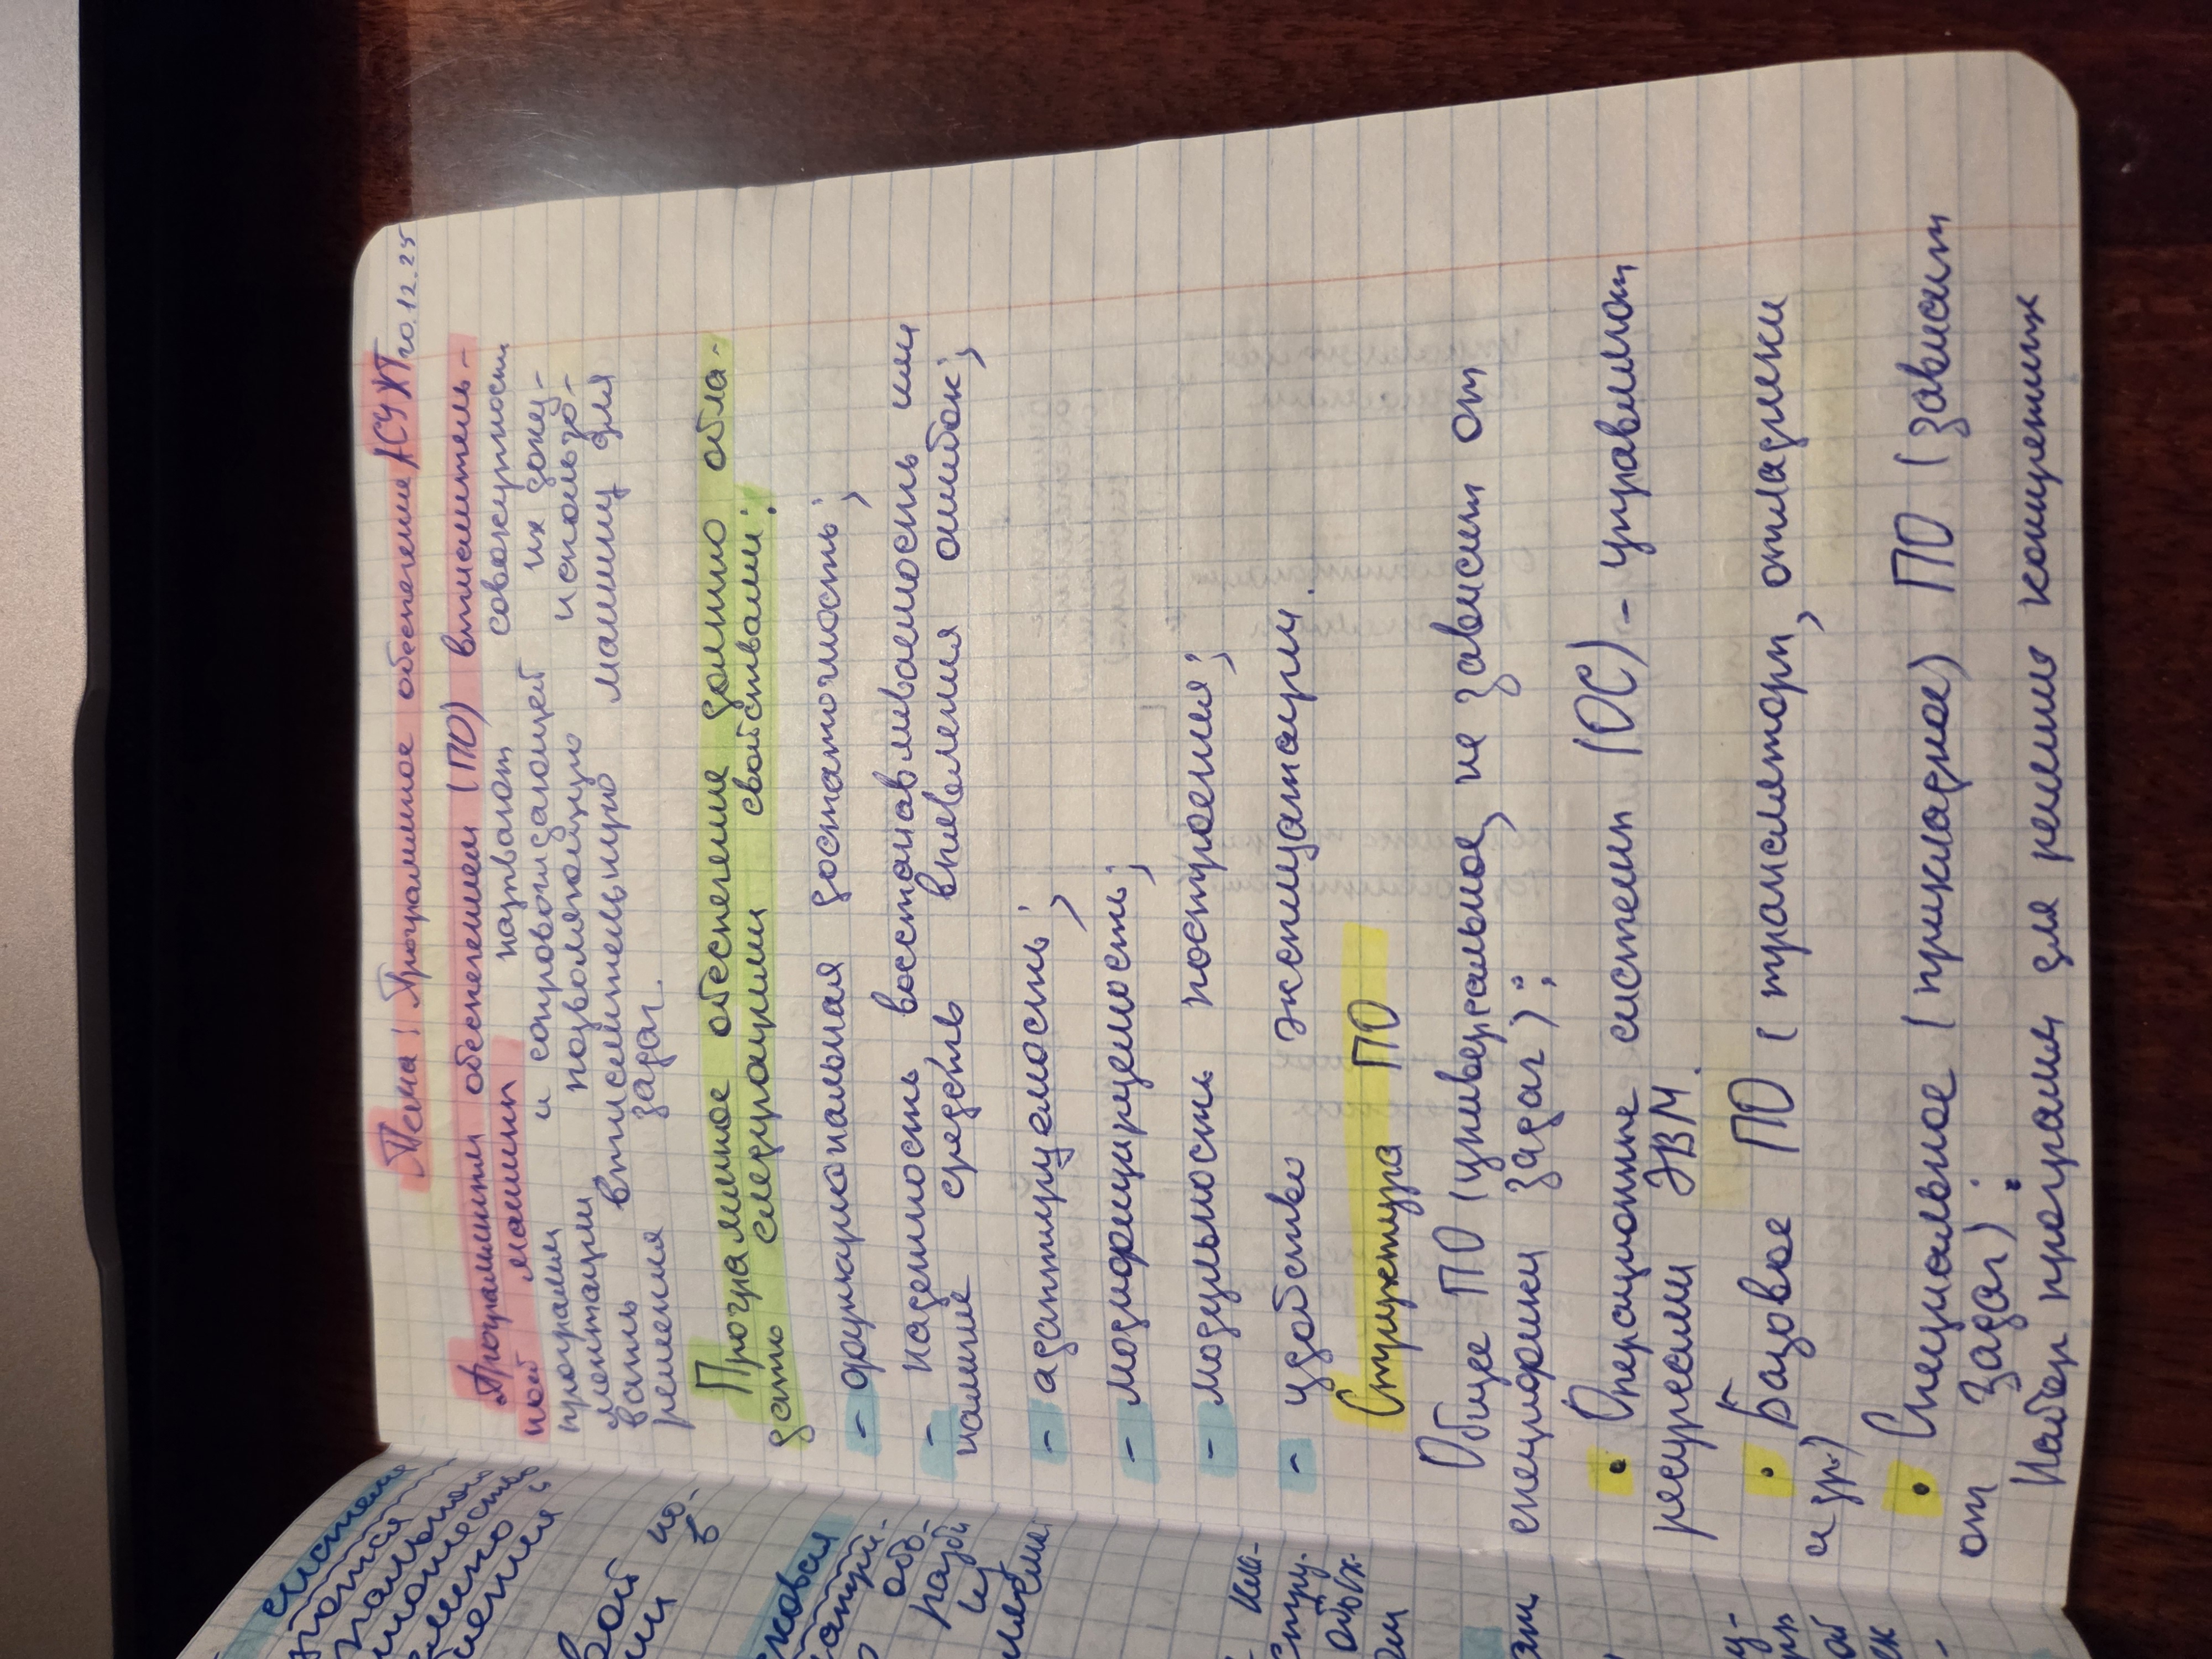 Тема: Программное обеспечение АСУЖТ 10.12.25
Программным обеспечением (ПО) вычислитель-
ной машины называют совокупность
программ и сопровождающей их доку-
ментации, позволяющую использо-
вать вычислительную машину для
решения задач.
Программное обеспечение должно обла-
дать следующими свойствами:
- функциональная достаточность;
- надежность восстанавливаемость или
наличие средств выявления ошибок;
- адаптируемость;
- модифицируемость;
- модульность построения;
- удобство эксплуатации.
Структура ПО
Общее ПО (универсальное, не зависит от
специфики задач);
• Операционные системы (ОС) - управляют
ресурсами ЭВМ.
• Базовое ПО (трансляторы, отладчики
и др.)
• Специальное (прикладное) ПО (зависит
от задач):
Набор программ для решения конкретных